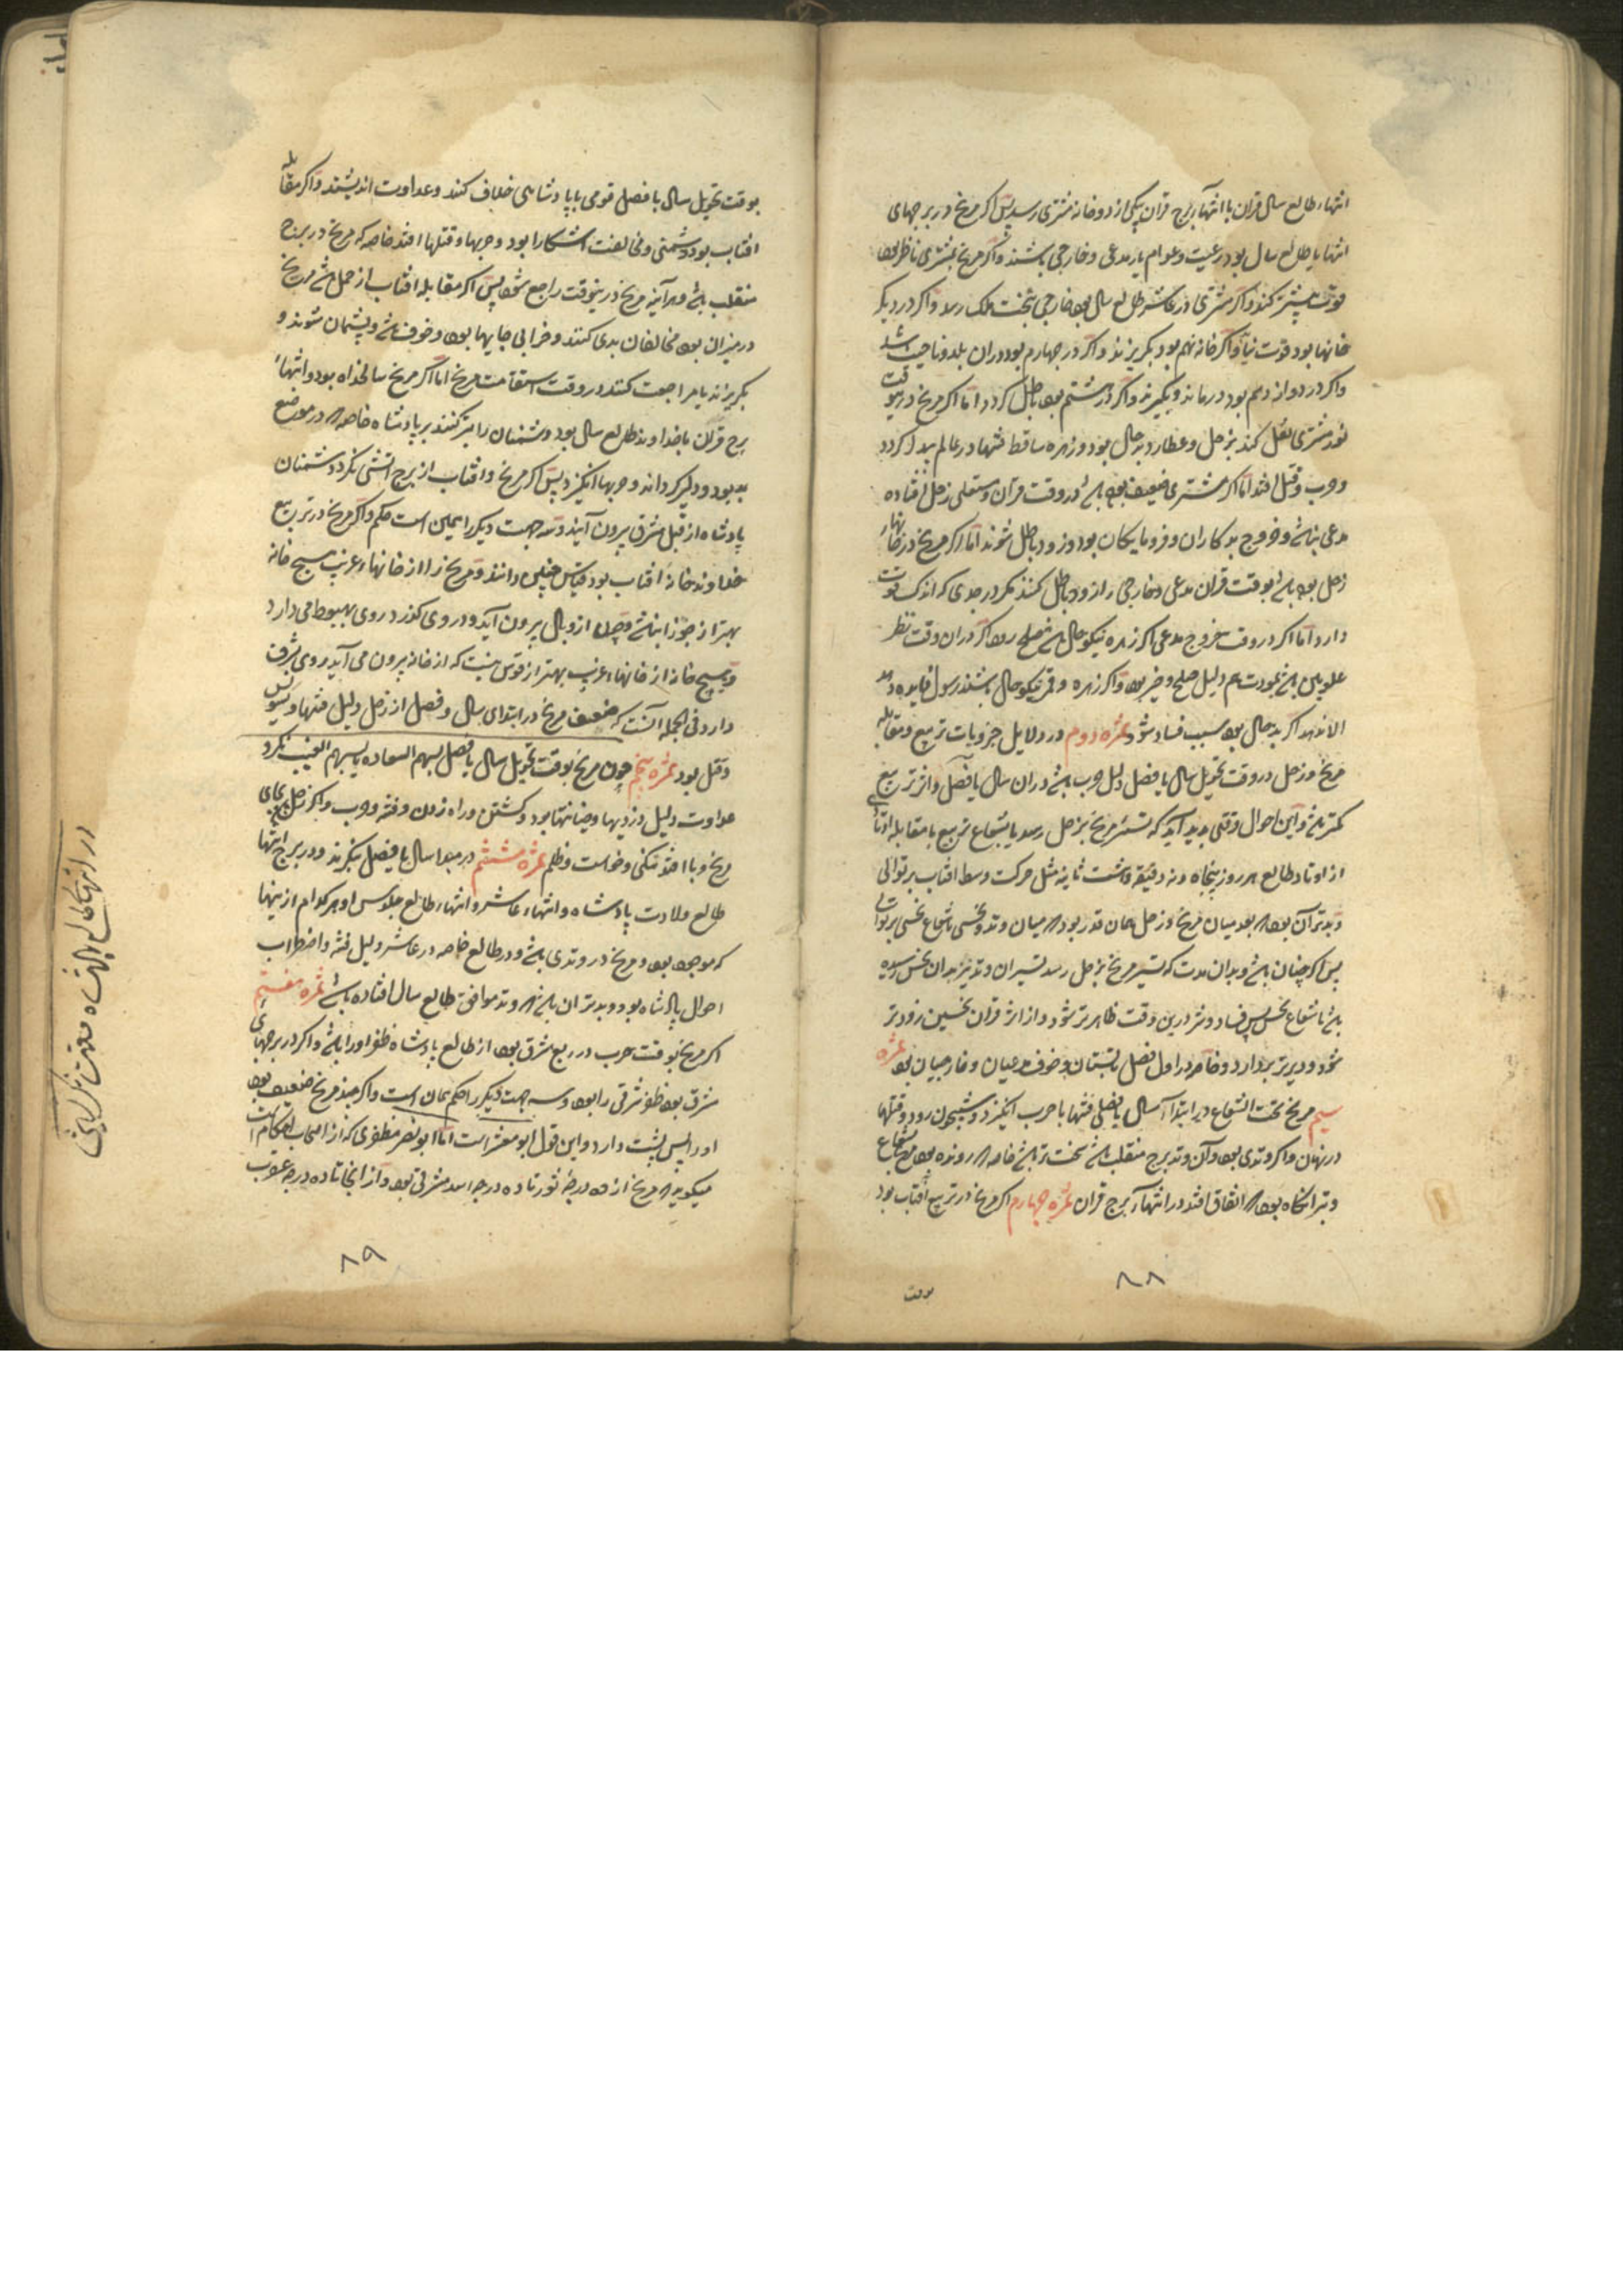 انتهاء طالع سال قران با انتهاء برج قران بیکی از دو خانه مشتری رسد پس اکر مریخ در برجهای
انتها یا طالع سال بود رعیت و عوام یار مدعی و خارجی باشند و اکر مریخ بمشتری ناظر بود
قوت بیشتر کند و اکر مشتری در عاشر طالع سال بود خارجی بتخت ملک رسد و اکر در دیکر
خانها بود قوت نیابد و اکر خانه نهم بود بکریزند و اکر در چهارم بود در ان بلد و ناحیت باشد
و اکر در دوازدهم بود درماند و بکیرند و اکر در هشتم بود باطل کردد اما اکر مریخ درین وقت
نور مشتری نقل کند بزحل و عطارد بدحال بود و زهره ساقط فتنها در عالم پیدا کردد
و حرب و قتل افتد اما اکر مشتری ضعیف بود باشد در وقت قران و مستعلی زحل افتاده
مدعی نباشد و خروج بدکاران و فرومایکان بود و زود باطل شوند اما اکر مریخ در خانهاء
زحل بود باشد بوقت قران مدعی و خارجی را زود باطل کنند مکر در جدی که اندک قوت
دارد اما اکر در وقت خروج مدعی اکر زهره نیکو حال باشد بصلح رود اکر در ان وقت نظر
علویین باشد بمودت هم دلیل صلح و خیر بود و اکر زهره و قمر نیکو حال باشند رسول فایده دهد
الا نه بد اکر بدحال بود سبب فساد شود ثمره دوم در دلایل جزویات تربیع و مقابله
مریخ و زحل در وقت تحویل سال یا فصل دلیل حرب باشد در ان سال یا فصل و اثر تربیع
کمتر باشد و این احوال وقتی پدید آید که تسییر مریخ بزحل رسد یا بشعاع تربیع یا مقابله او تا
از اوتاد طالع هر روز پنجاه و نه دقیقه و هشت ثانیه مثل حرکت وسط افتاب بر توالی
و بدتر آن بود که بعد میان مریخ و زحل همان قدر بود که میان وتد و نحسی تا شعاع نحسی بر توالی
پس اکر چنان باشد و بدان مدت که تسییر مریخ بزحل رسد تسییر ان وتد نیز بدان نحس رسیده
باشد تا شعاع نحس پس فساد و شر درین وقت ظاهرتر شود و از اثر قران نحسین زودتر
شود و دیرتر بردارد و خاصه در اول فصل تابستان و خوف مدعیان و خارجیان بود ثمره
سیم مریخ تحت الشعاع در ابتداء سال یا فصلی فتنها یا حرب انکیزد و شبیخون رود و قتلها
در نهان و اکر وتدی بود و آن وتد برج منقلب باشد سخت تر باشد خاصه که رونده بود بشعاع
و بتر انکاه بود که اتفاق افتد در انتهاء برج قران ثمره چهارم اکر مریخ در تربیع افتاب بود
بوقت
۸۸
بوقت تحویل سال یا فصل قومی با پادشاهی خلاف کنند و عداوت اندیشند و اکر مقابله
افتاب بود دشمنی و مخالفت اشکارا بود و حربها و قتلها افتد خاصه که مریخ در برج
منقلب باشد و هر آینه مریخ درینوقت راجع شود پس اکر مقابله افتاب از حمل باشد و مریخ
در میزان بود مخالفان بدی کنند و خرابی جایها بود و خوف باشد و پشیمان شوند و
بکریزند یا مراجعت کنند در وقت استقامت مریخ اما اکر مریخ سالخداه بود و انتهاء
برج قران با خداوند طالع سال بود دشمنان را بتر کنند بر پادشاه خاصه که در موضع
بد بود و دلیر کرداند و حربها انکیزد پس اکر مریخ و افتاب از برج اتشی نکرد دشمنان
پادشاه از قبل مشرق بیرون آیند و سه جهت دیکر را همین است حکم و اکر مریخ در تربیع
خداوند خانه افتاب بود قیاس چنین دانند و مریخ را از خانهاء غریب هیچ خانه
بهتر از جوزا نباشد چون از وبال بیرون آید و در وی کذرد روی بهبوط می دارد
و هیچ خانه از خانهاء غریب بهتر از قوس نیست که از خانه بیرون می آید روی بشرف
دارد فی الجمله آنست که ضعیف مریخ در ابتدای سال و فصل از زحل دلیل فتنها و کین
و قتل بود ثمره پنجم چون مریخ بوقت تحویل سال یا فصل بسهم السعاده یا بسهم الغیب نکرد
عداوت دلیل دزدیها و خیانتها بود و کشتن و راه زدن و فتنه و حرب و اکر زحل بجای
مریخ وبا افتد تنکی و خواست و ظلم ثمره ششم در مبدا سال یا فصل بنکرند و در برج انتها
طالع ولادت پادشاه و انتهاء عاشر و انتهاء طالع جلوس او هر کدام ازینها
که موجود بود و مریخ در وتدی باشد و در طالع خاصه در عاشر دلیل فتنه و اضطراب
احوال پادشاه بود و بدتر ان باشد که وتد موافق طالع سال افتاده باشد ثمره هفتم
اکر مریخ بوقت حرب در ربع شرقی بود از طالع پادشاه ظفر او را باشد و اکر در برجهای
شرقی بود ظفر شرقی را بود و سه جهت دیکر را حکم همان است و اکر چند مریخ ضعیف بود
او را پس پشت دارد و این قول ابو معشر است اما ابو نصر مظفری که از اصحاب احکام است
میکوید که مریخ از ده درجه ثور تا ده درجه اسد مشرقی بود و از انجا تا ده درجه عقرب
۸۹